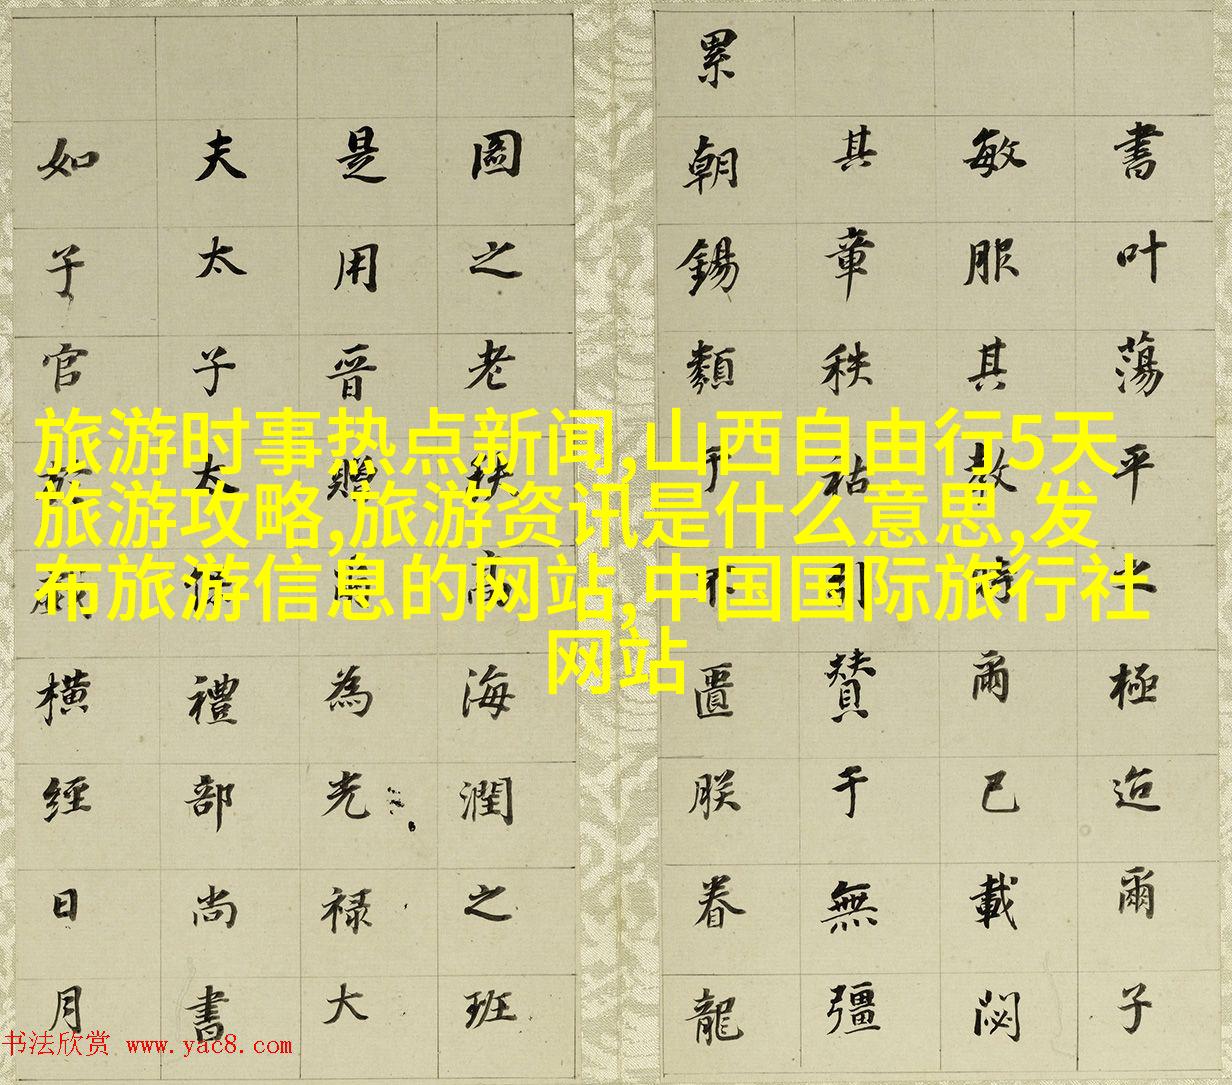 旅游时事热点新闻,山西自由行5天
旅游攻略,旅游资讯是什么意思,发
布旅游信息的网站,中国国际旅行社
网站
書叶蕩平之極迨爾子
敏服其教時爾已載閟
其章秩祜引贊于無彊
累朝錫類于不匱朕眷龍
圖之老秩高海潤之班
是用晉贈為光禄大
夫太子太禮部尚書
如子官橫經日月
书法欣赏 www.yac8.com